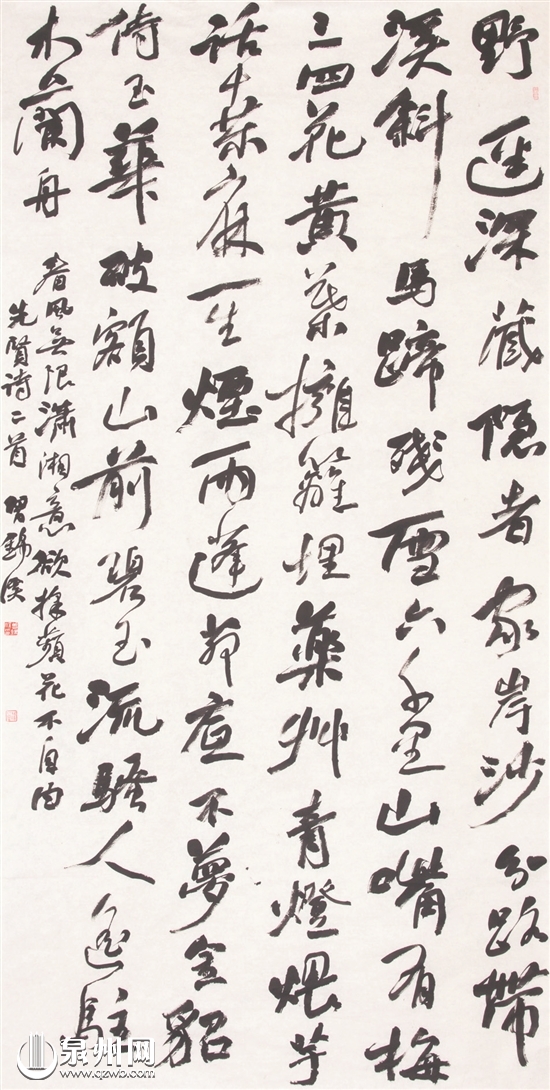 野逕深藏隐者家岸沙分路带
溪斜馬蹄残雪六七里山嘴有梅
三四花黄葉擁籬埋藥艸青燈煨芋
话桑麻一生煙雨蓬茆底不夢金貂
侍玉華破額山前碧玉流騷人遙駐
木蘭舟
春風無限瀟湘意欲採蘋花不自由
先贤诗二首
泉州网
www.qzwb.com